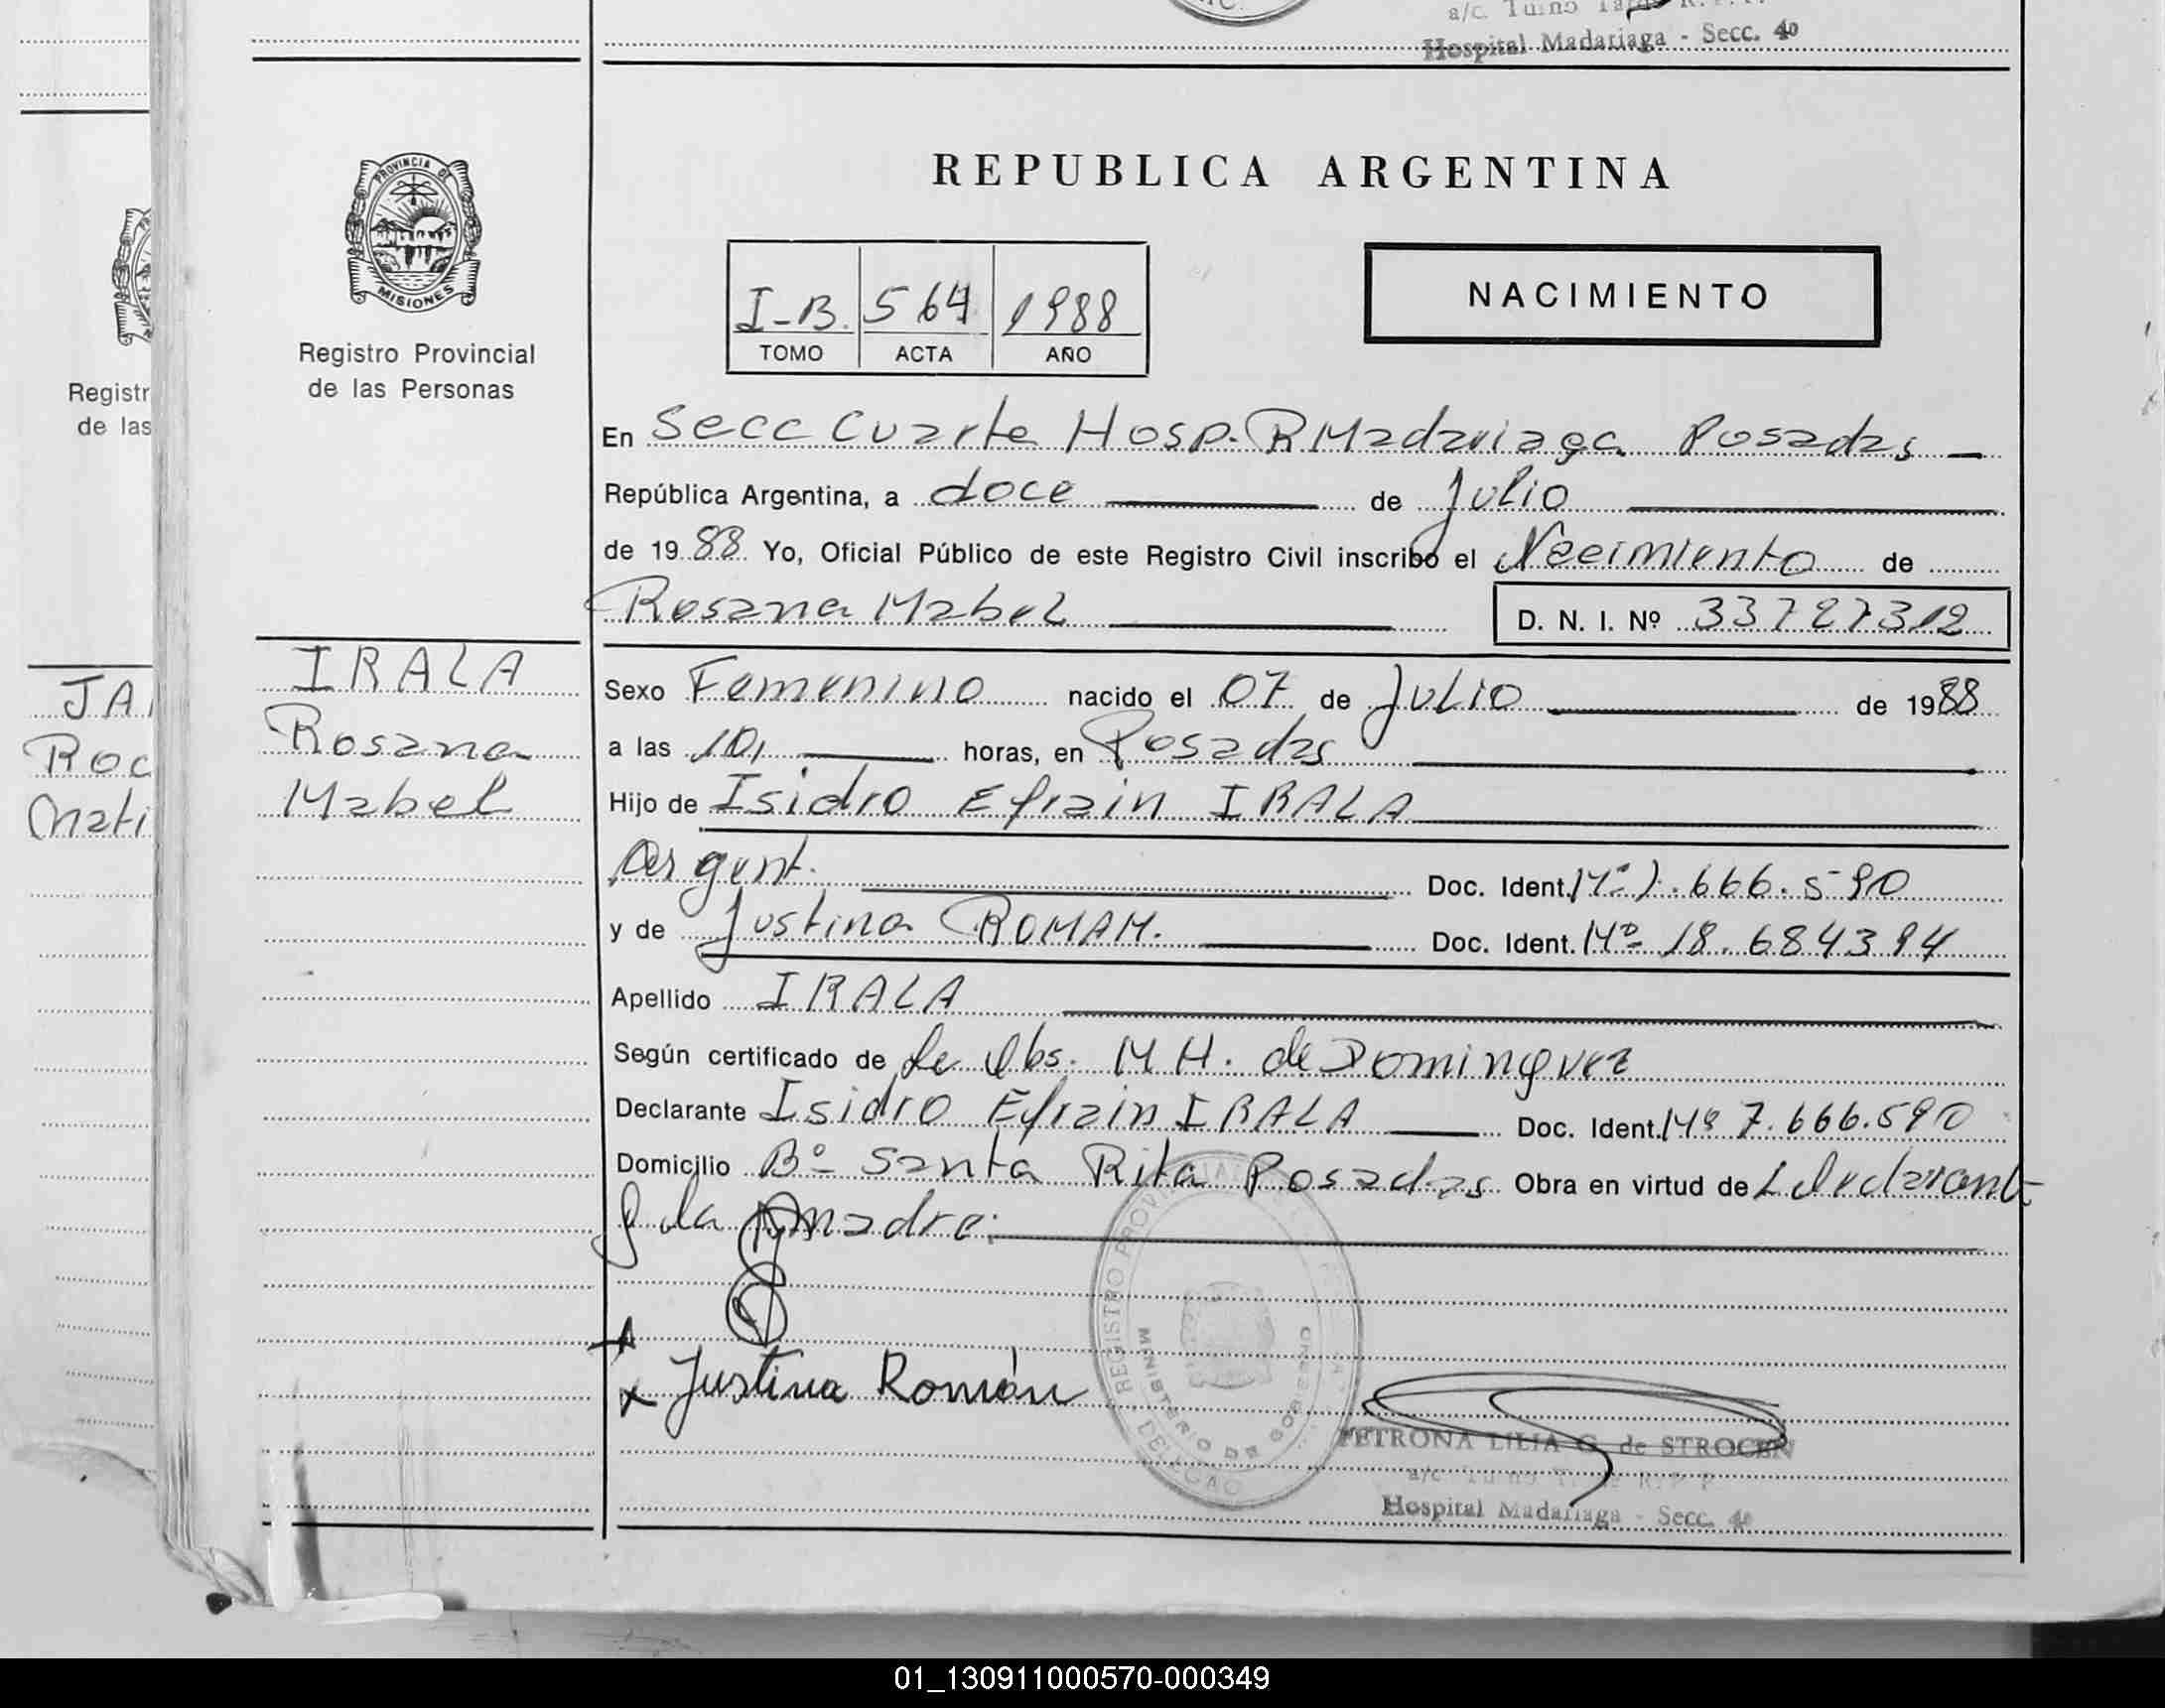 a/c. Turno Tarde R. P. P.
Hospital Madariaga - Secc. 4º
PROVINCIA DE
MISIONES
Registro Provincial
de las Personas
Registr
de las
REPUBLICA ARGENTINA
I-B. 564 1988
TOMO ACTA AÑO
NACIMIENTO
En Secc Cuarta Hosp. R Madariaga Posadas
República Argentina, a doce de Julio
de 1988 Yo, Oficial Público de este Registro Civil inscribo el Nacimiento de
Rosana Mabel D. N. I. Nº 33727312
JA
Roc
Mati
IRALA
Rosana
Mabel
Sexo Femenino nacido el 07 de Julio de 1988
a las 10, horas, en Posadas
Hijo de Isidro Efrain IRALA
Argent. Doc. Ident. Nº 7.666.590
y de Justina ROMAN. Doc. Ident. Nº 18.684394
Apellido IRALA
Según certificado de La Obs. M H. de Dominguez
Declarante Isidro Efrain IRALA Doc. Ident. Nº 7.666.590
Domicilio Bº Santa Rita Posadas Obra en virtud de L Declarante
y la madre:
x Justina Román
REGISTRO PROVINCIAL
MINISTERIO DE GOBIERNO
PETRONA LILIA G. de STROCEN
a/c Turno Tarde R. P. P.
Hospital Madariaga - Secc. 4º
01_130911000570-000349